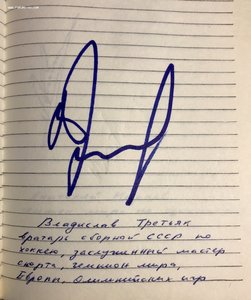 Владислав Третьяк
вратарь сборной СССР по
хоккею, заслуженный мастер
спорта, чемпион мира,
Европы, Олимпийских игр